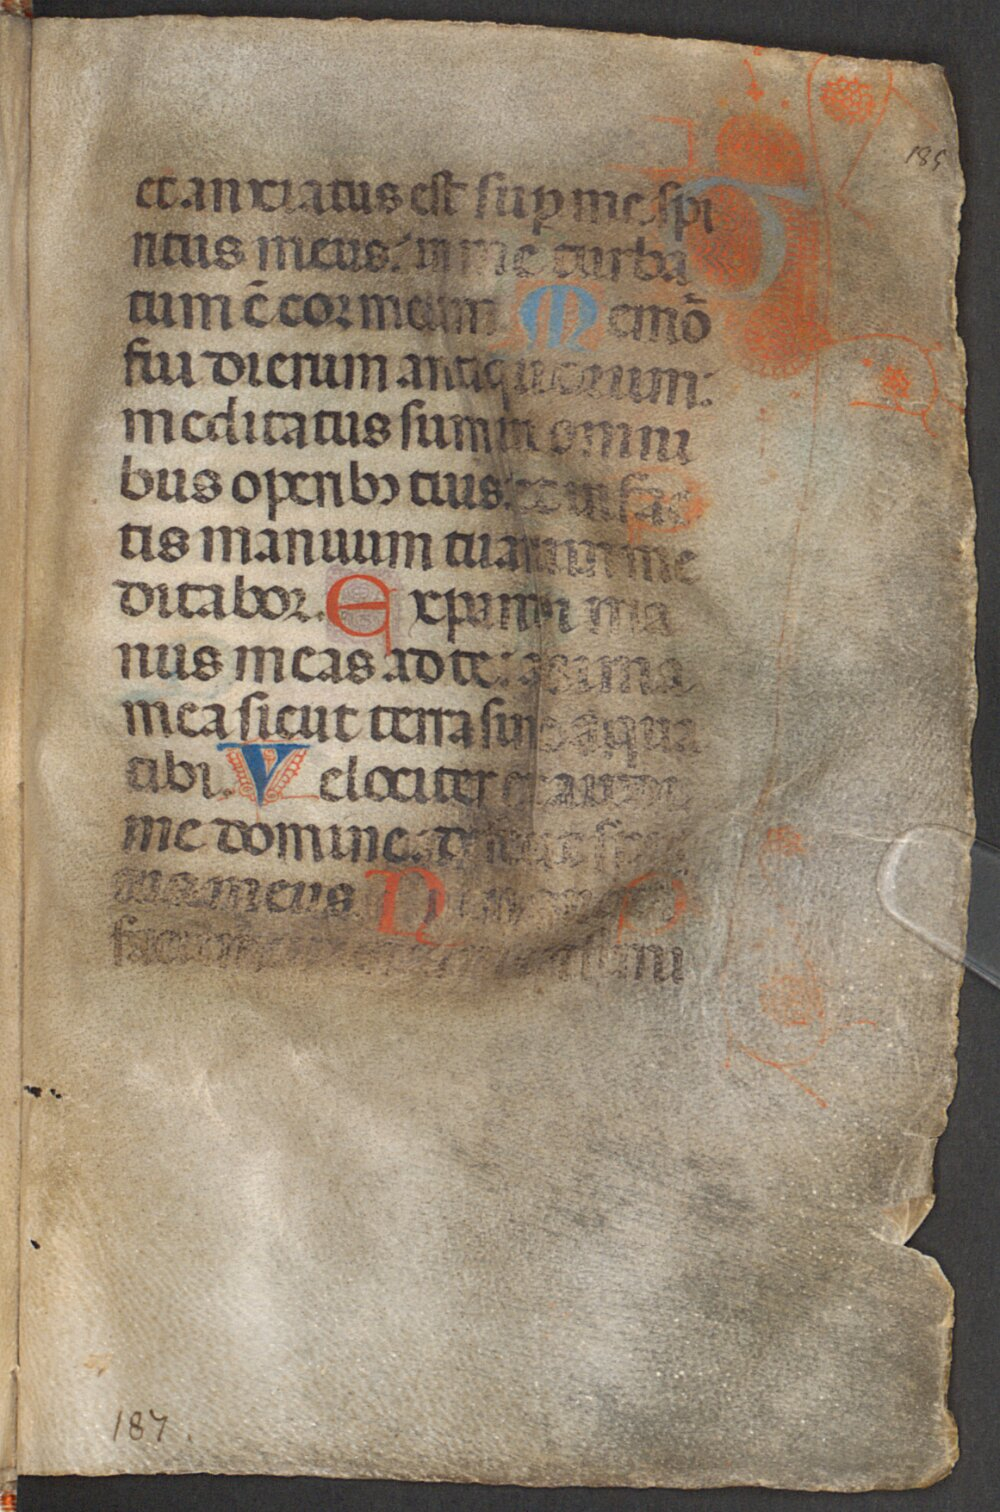 185
et anxiatus est sup me spi
ritus meus: in me turba
tum ē cor meum Memō
fui dierum antiquorum:
meditatus sum in omni
bus operibꝫ tuis: et in fac
tis manuum tuarum me
ditabor. Expandi ma
nus meas ad te: anima
mea sicut terra sine aqua
tibi. Velociter exaudi
me domine: d
meus. N
187.